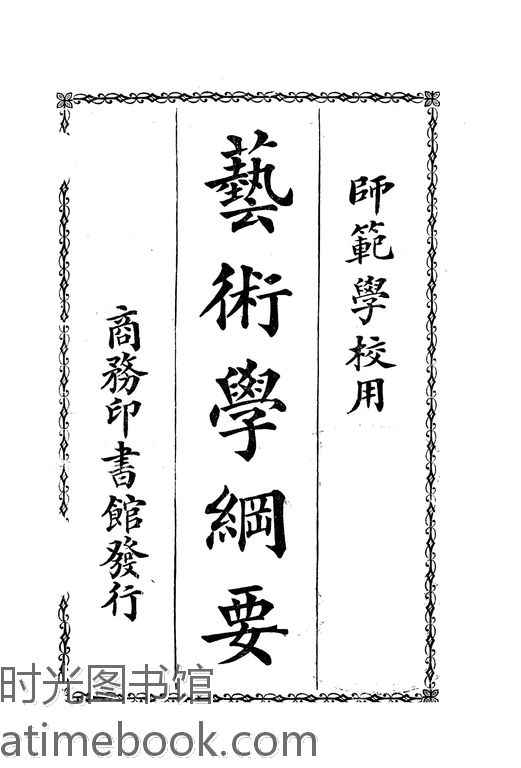 師範學校用
藝術學綱要
商務印書館發行
时光图书馆
atimebook.com